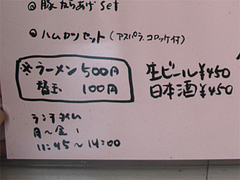 ◎豚からあげset
◎ハムカツセット(アスパラ、コロッケ付)
※ラーメン 500円
替玉 100円
生ビール ¥450
日本酒 ¥450
ランチタイム
月〜金
11:45〜14:00